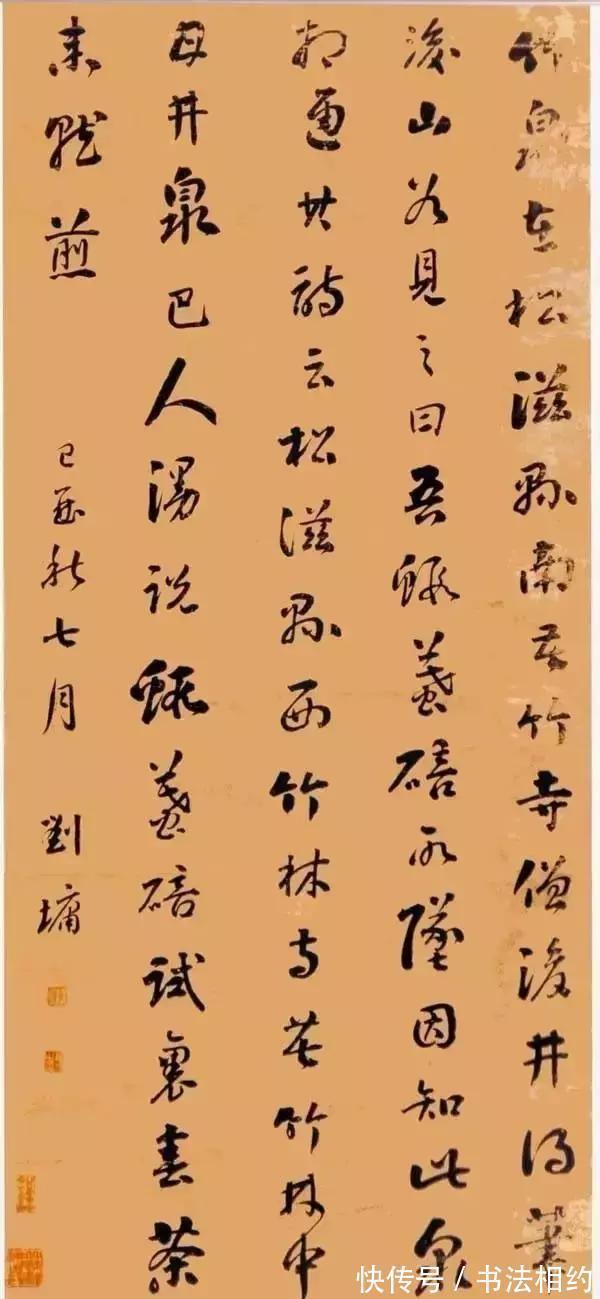 竹泉在松滋縣南苦竹寺僧浚井得筆
後山谷見之曰吾蝦蟇碚所墜因知此泉
相通其詩云松滋縣西竹林寺苦竹林中
甘井泉巴人漫說蝦蟇碚試裹春茶
來就煎
己酉秋七月 劉墉
快传号 / 书法相约